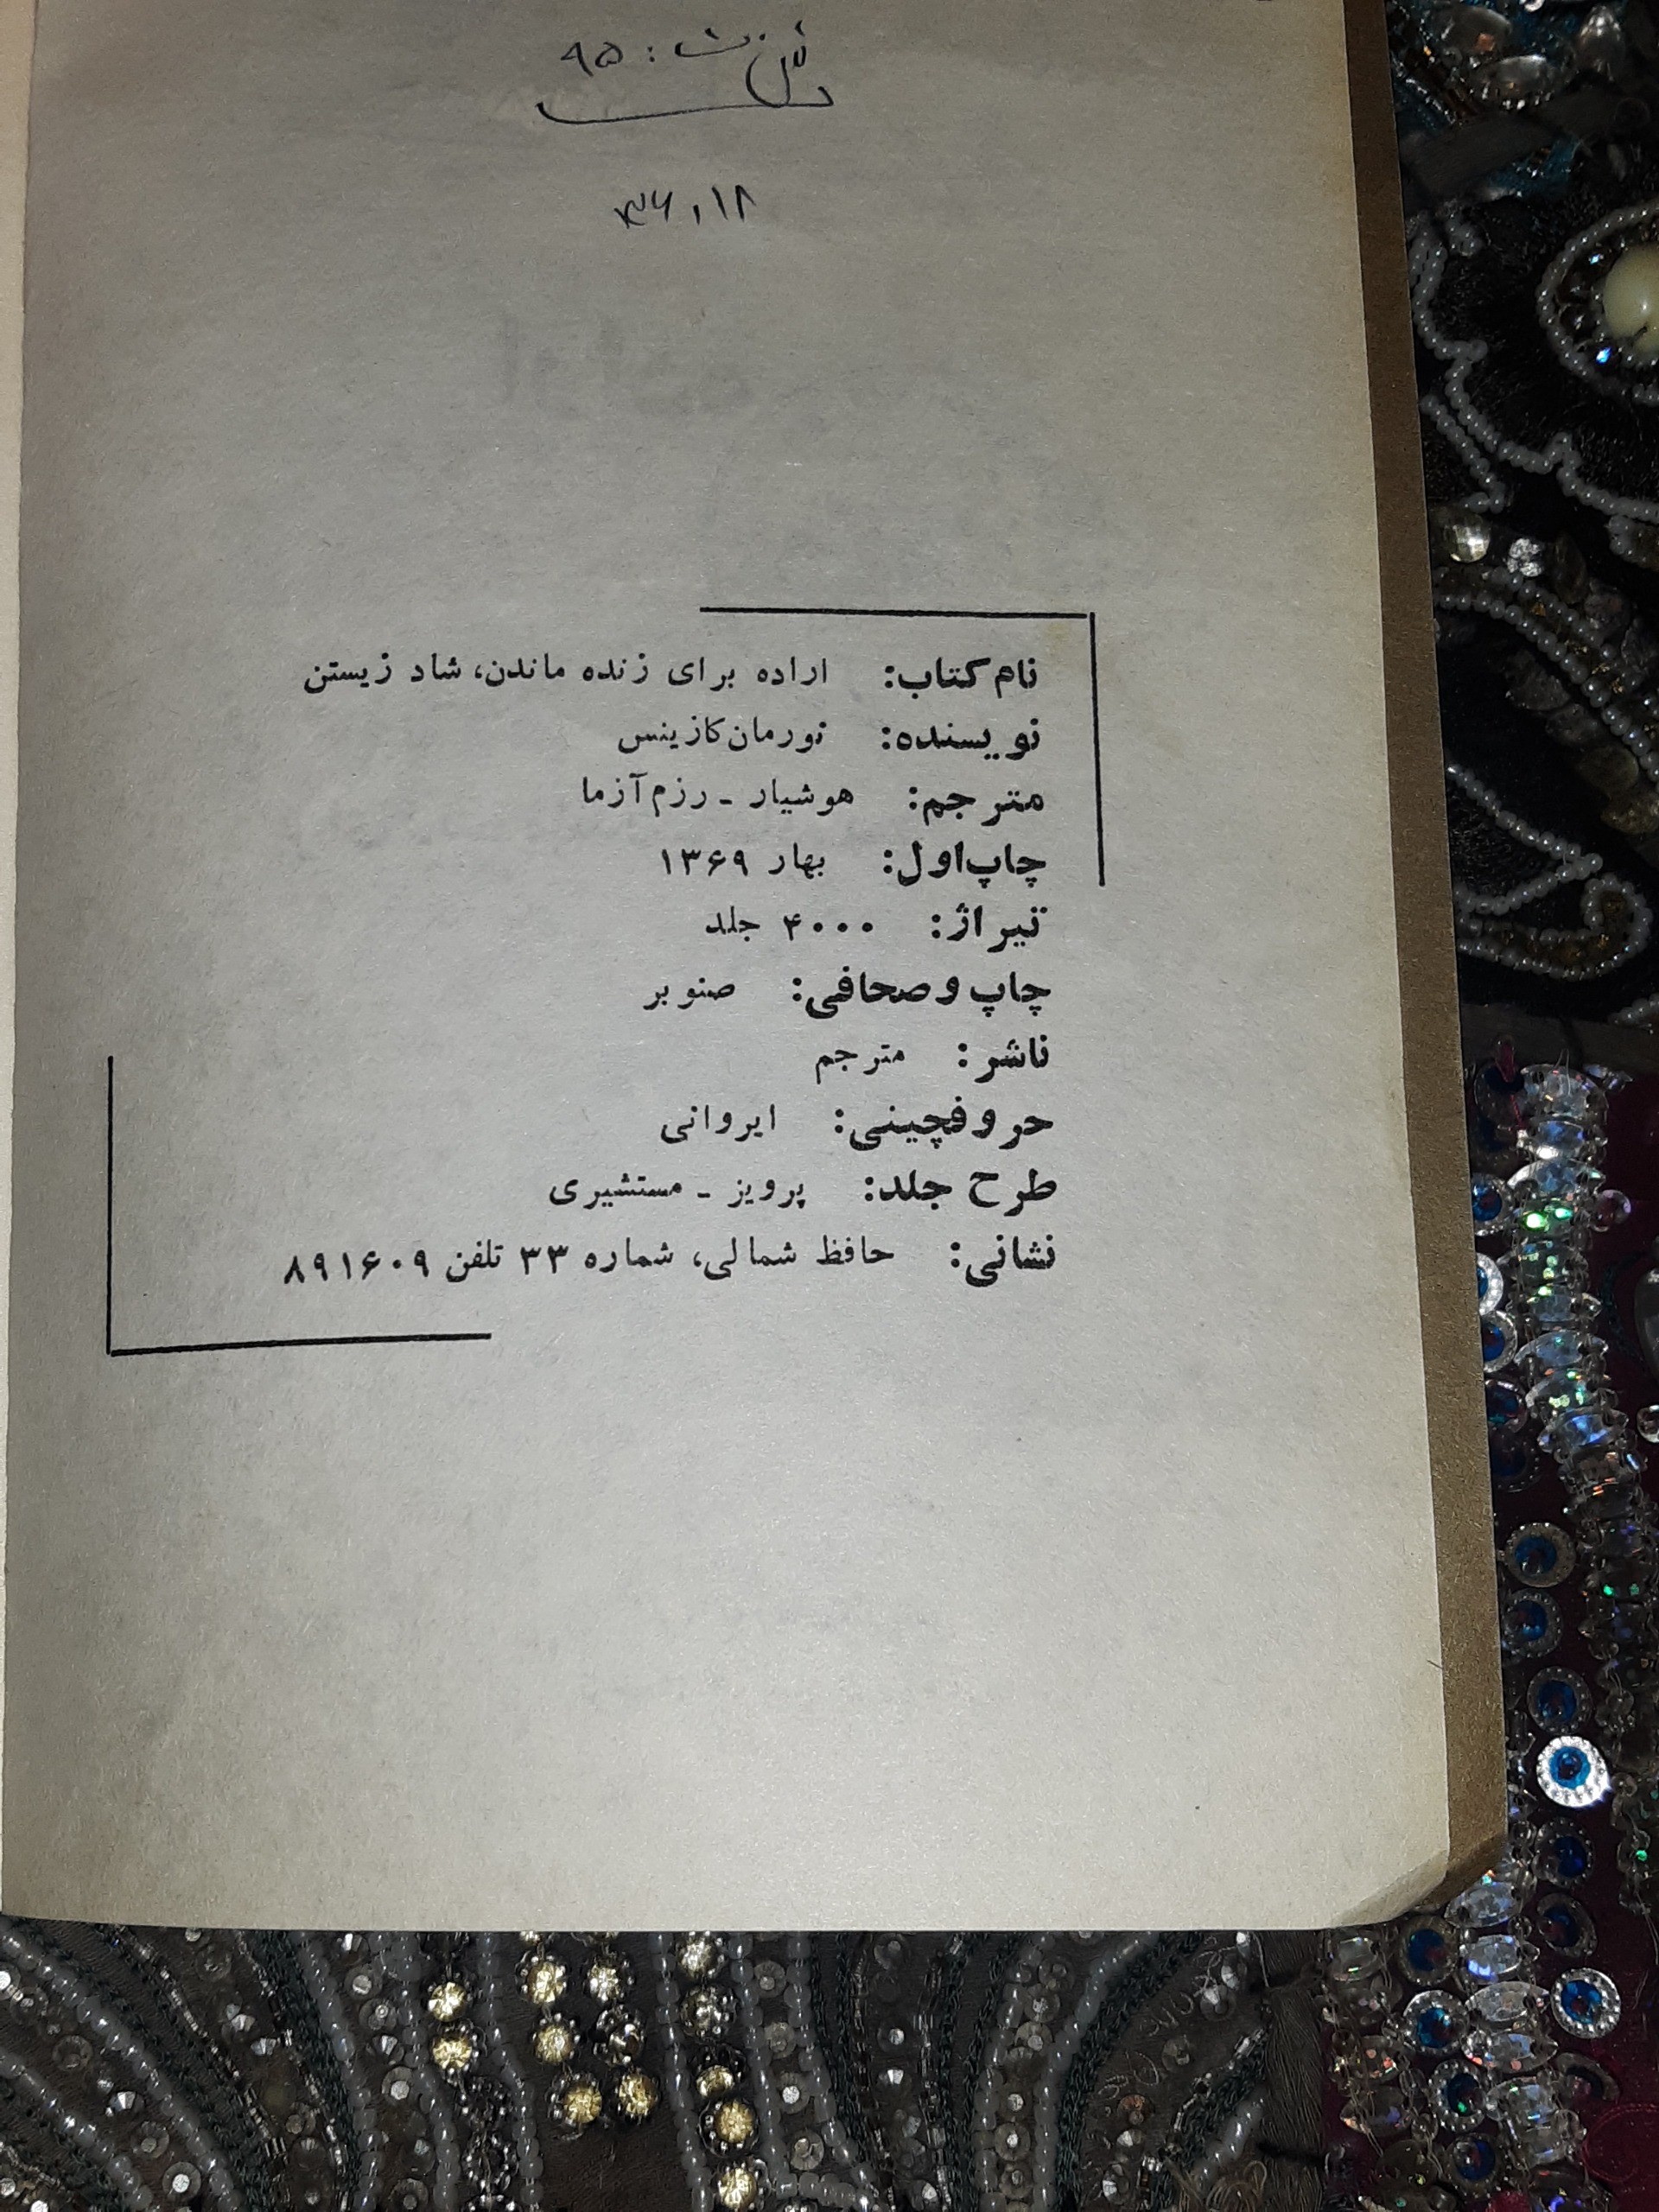 ۳۶،۱۸
نام کتاب: اراده برای زنده ماندن، شاد زیستن
نویسنده: نورمان کازینس
مترجم: هوشیار ـ رزم آزما
چاپ اول: بهار ۱۳۶۹
تیراژ: ۴۰۰۰ جلد
چاپ و صحافی: صنوبر
ناشر: مترجم
حروفچینی: ایروانی
طرح جلد: پرویز ـ مستشیری
نشانی: حافظ شمالی، شماره ۳۳ تلفن ۸۹۱۶۰۹